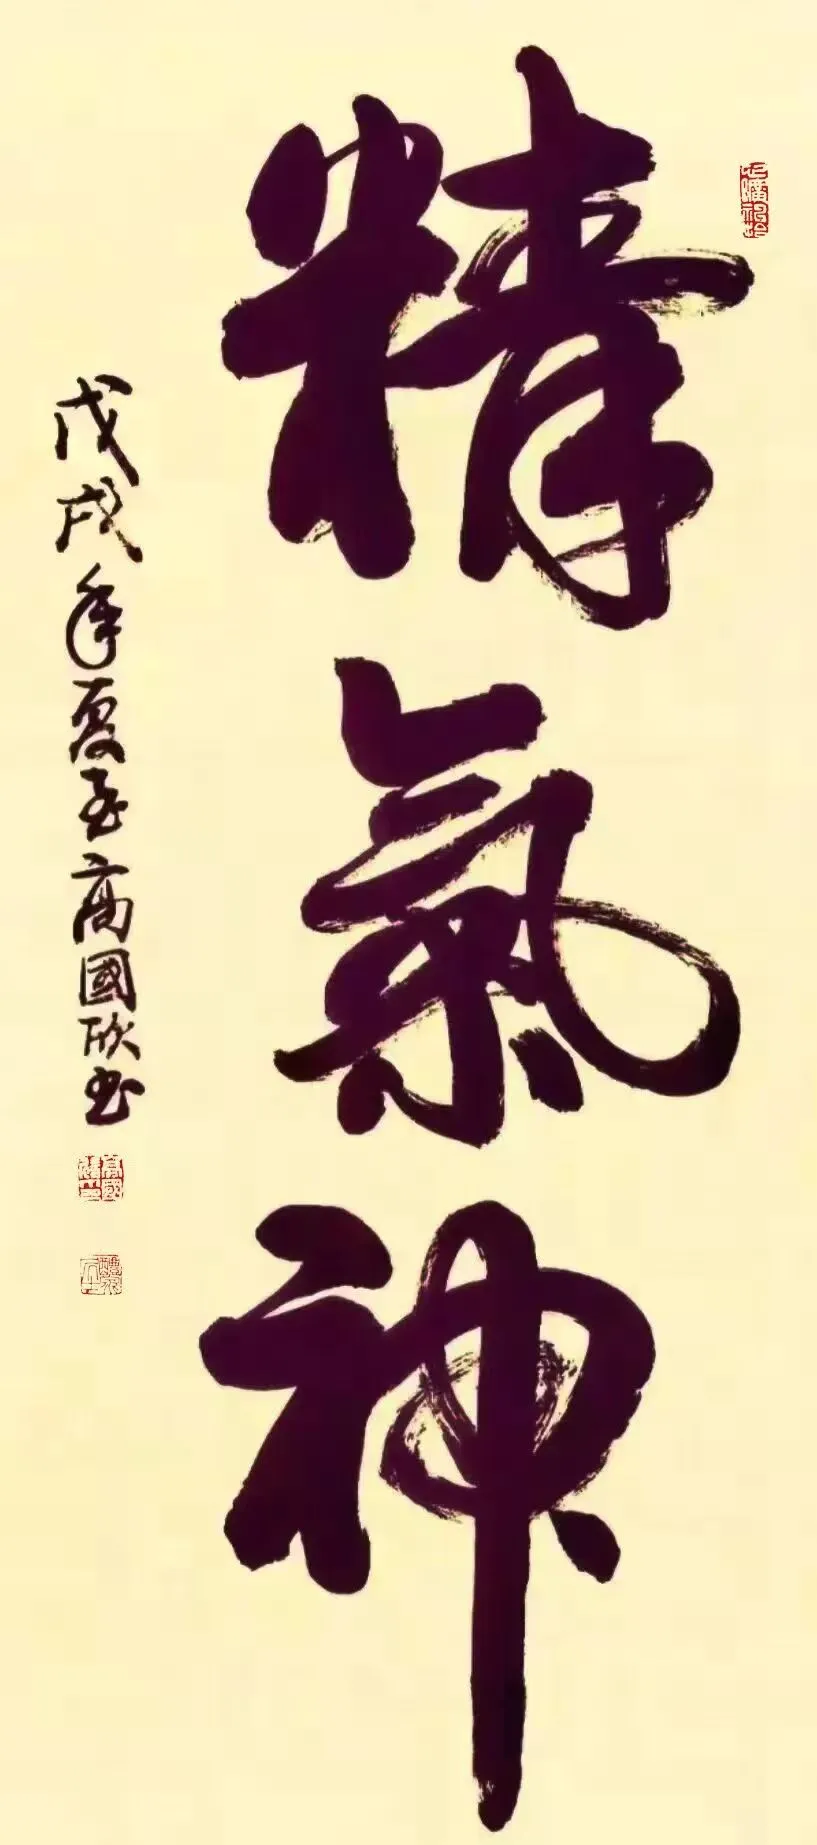 精氣神
戊戌年夏至高國欣书